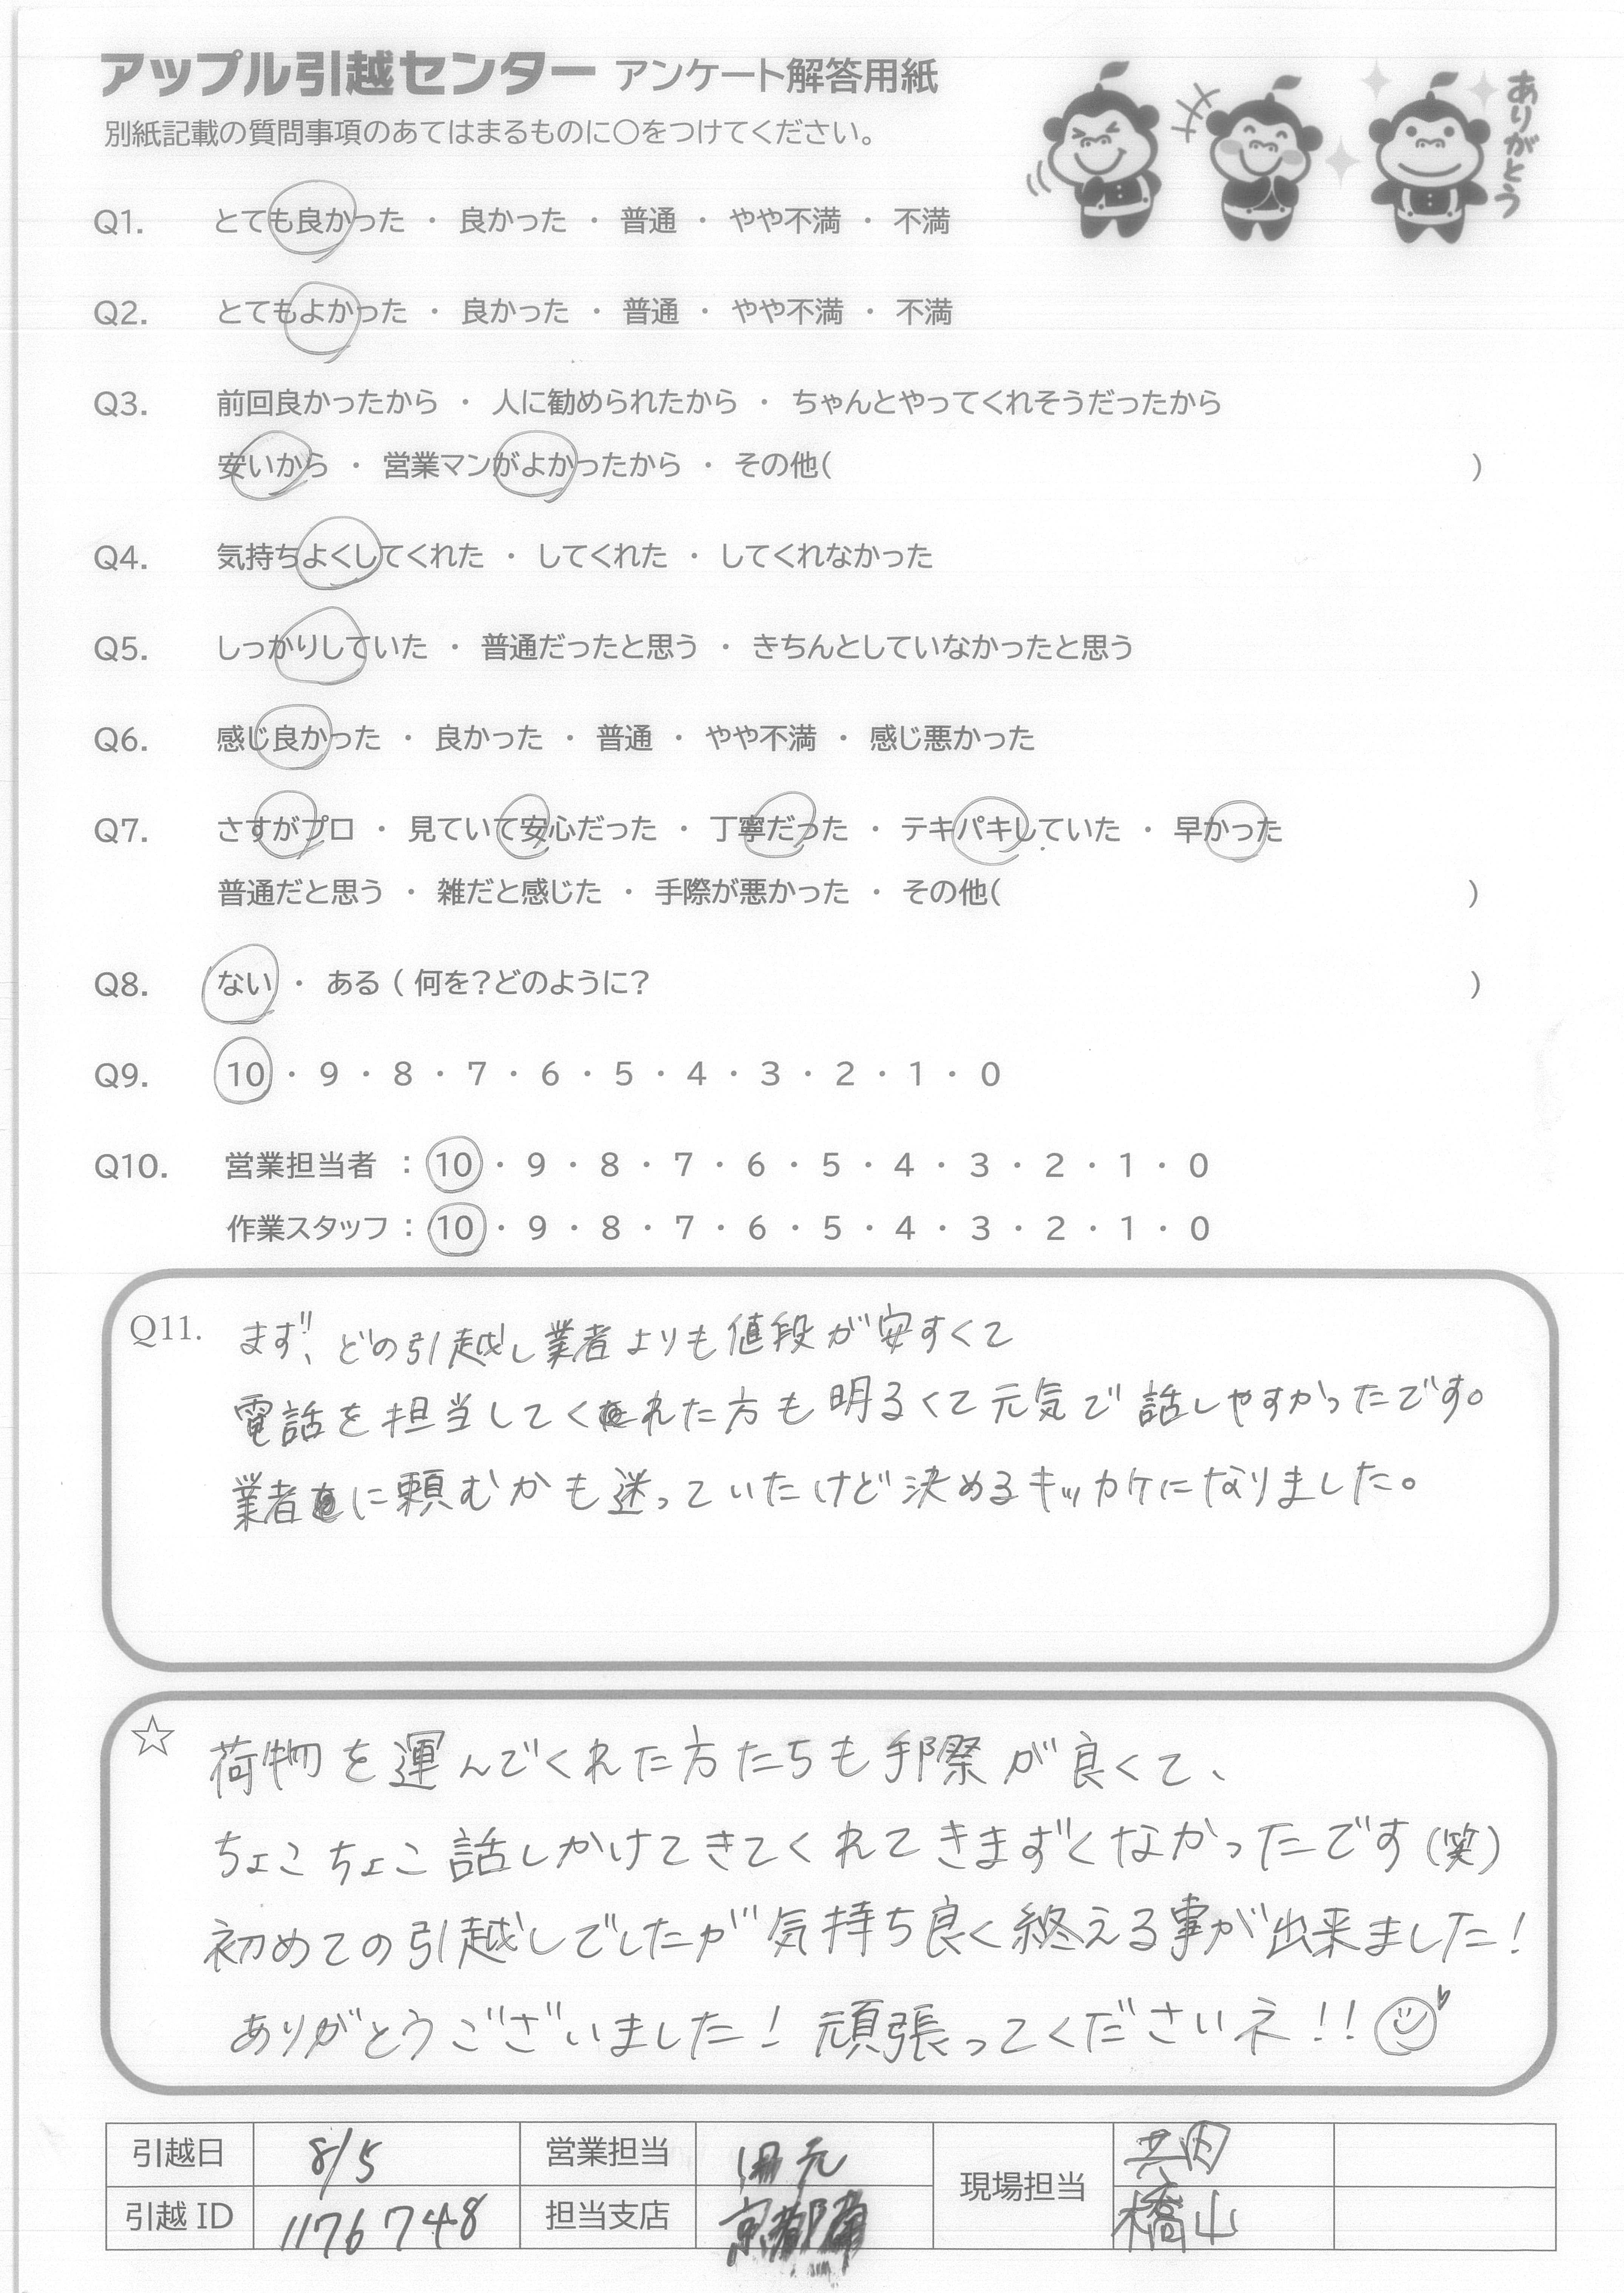 アップル引越センター アンケート解答用紙
ありがとう
別紙記載の質問事項のあてはまるものに○をつけてください。
Q1. とても良かった ・ 良かった ・ 普通 ・ やや不満 ・ 不満
Q2. とてもよかった ・ 良かった ・ 普通 ・ やや不満 ・ 不満
Q3. 前回良かったから ・ 人に勧められたから ・ ちゃんとやってくれそうだったから
安いから ・ 営業マンがよかったから ・ その他( )
Q4. 気持ちよくしてくれた ・ してくれた ・ してくれなかった
Q5. しっかりしていた ・ 普通だったと思う ・ きちんとしていなかったと思う
Q6. 感じ良かった ・ 良かった ・ 普通 ・ やや不満 ・ 感じ悪かった
Q7. さすがプロ ・ 見ていて安心だった ・ 丁寧だった ・ テキパキしていた ・ 早かった
普通だと思う ・ 雑だと感じた ・ 手際が悪かった ・ その他( )
Q8. ない ・ ある ( 何を?どのように? )
Q9. 10 ・ 9 ・ 8 ・ 7 ・ 6 ・ 5 ・ 4 ・ 3 ・ 2 ・ 1 ・ 0
Q10. 営業担当者 : 10 ・ 9 ・ 8 ・ 7 ・ 6 ・ 5 ・ 4 ・ 3 ・ 2 ・ 1 ・ 0
作業スタッフ : 10 ・ 9 ・ 8 ・ 7 ・ 6 ・ 5 ・ 4 ・ 3 ・ 2 ・ 1 ・ 0
Q11. まず、どの引越し業者よりも値段が安すくて
電話を担当してくれた方も明るくて元気で話しやすかったです。
業者に頼むかも迷っていたけど決めるキッカケになりました。
☆ 荷物を運んでくれた方たちも手際が良くて、
ちょこちょこ話しかけてきてくれてきまずくなかったです(笑)
初めての引越しでしたが気持ち良く終える事が出来ました!
ありがとうございました! 頑張ってくださいネ!!
引越日 8/5 営業担当 元 現場担当
引越ID 1176748 担当支店 京都南 橋山